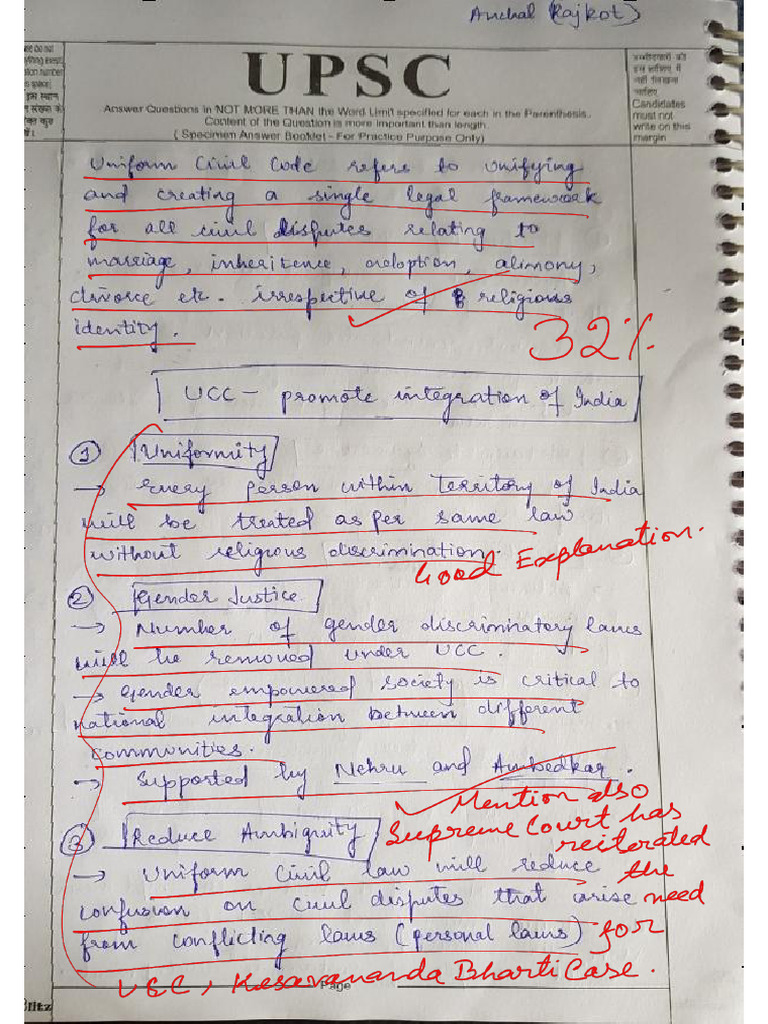 Anchal (Rajkot)
UPSC
Answer Questions in 'NOT MORE THAN the Word Limit specified for each in the Parenthesis.
Content of the Question is more important than length.
( Specimen Answer Booklet - For Practice Purpose Only)
उम्मीदवारों को
इस हाशिए में
नहीं लिखना
चाहिए
Candidates
must not
write on this
margin
Uniform Civil Code refers to unifying
and creating a single legal framework
for all civil disputes relating to
marriage, inheritence, adoption, alimony,
divorce etc. irrespective of religious
identity.
32%
UCC - promote integration of India
1 Uniformity
→ Every person within Territory of India
will be treated as per same law
without religious discrimination.
Good Explanation.
2 Gender Justice
→ Number of gender discriminatory laws
will be removed under UCC.
→ Gender empowered society is critical to
national integration between different
communities.
→ Supported by Nehru and Ambedkar.
Mention also
Supreme Court has
reiterated
the
need
for
UCC, Kesavananda Bharti Case.
3 Reduce Ambiguity
→ Uniform civil law will reduce
confusion on civil disputes that arise
from conflicting laws (personal laws)
Page